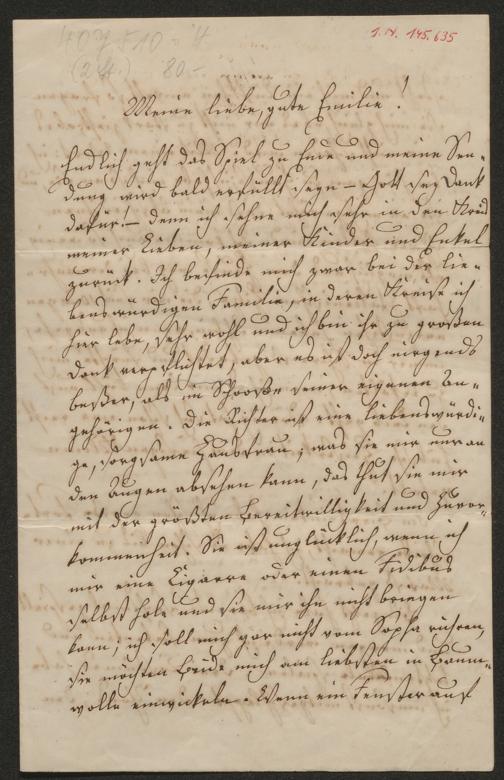 I.N. 145.635
80.-
Meine liebe, gute Emilie!
Endlich geht das Spiel zu Ende und meine Sen-
dung wird bald erfüllt seyn – Gott sey Dank
dafür! – denn ich sehne mich sehr in den Kreis
meiner Lieben, meiner Kinder und Enkel
zurück. Ich befinde mich zwar bei der lie-
benswürdigen Familie, in deren Kreise ich
hier lebe, sehr wohl und ich bin ihr zu großen
Dank verpflichtet, aber es ist doch nirgends
beßer, als im Schooße seiner eigenen An-
gehörigen. Die Richter ist eine liebenswürdi-
ge, sorgsame Hausfrau; was sie mir nur an
den Augen absehen kann, das thut sie mir
mit der größten Bereitwilligkeit und Zuvor-
kommenheit. Sie ist unglücklich, wenn ich
mir eine Cigarre oder einen Fidibus
selbst hole und sie mir ihn nicht bringen
kann; ich soll mich gar nicht vom Sopha rühren,
sie möchten Beide mich am liebsten in Baum-
wolle einwickeln. Wenn ein Fenster auf